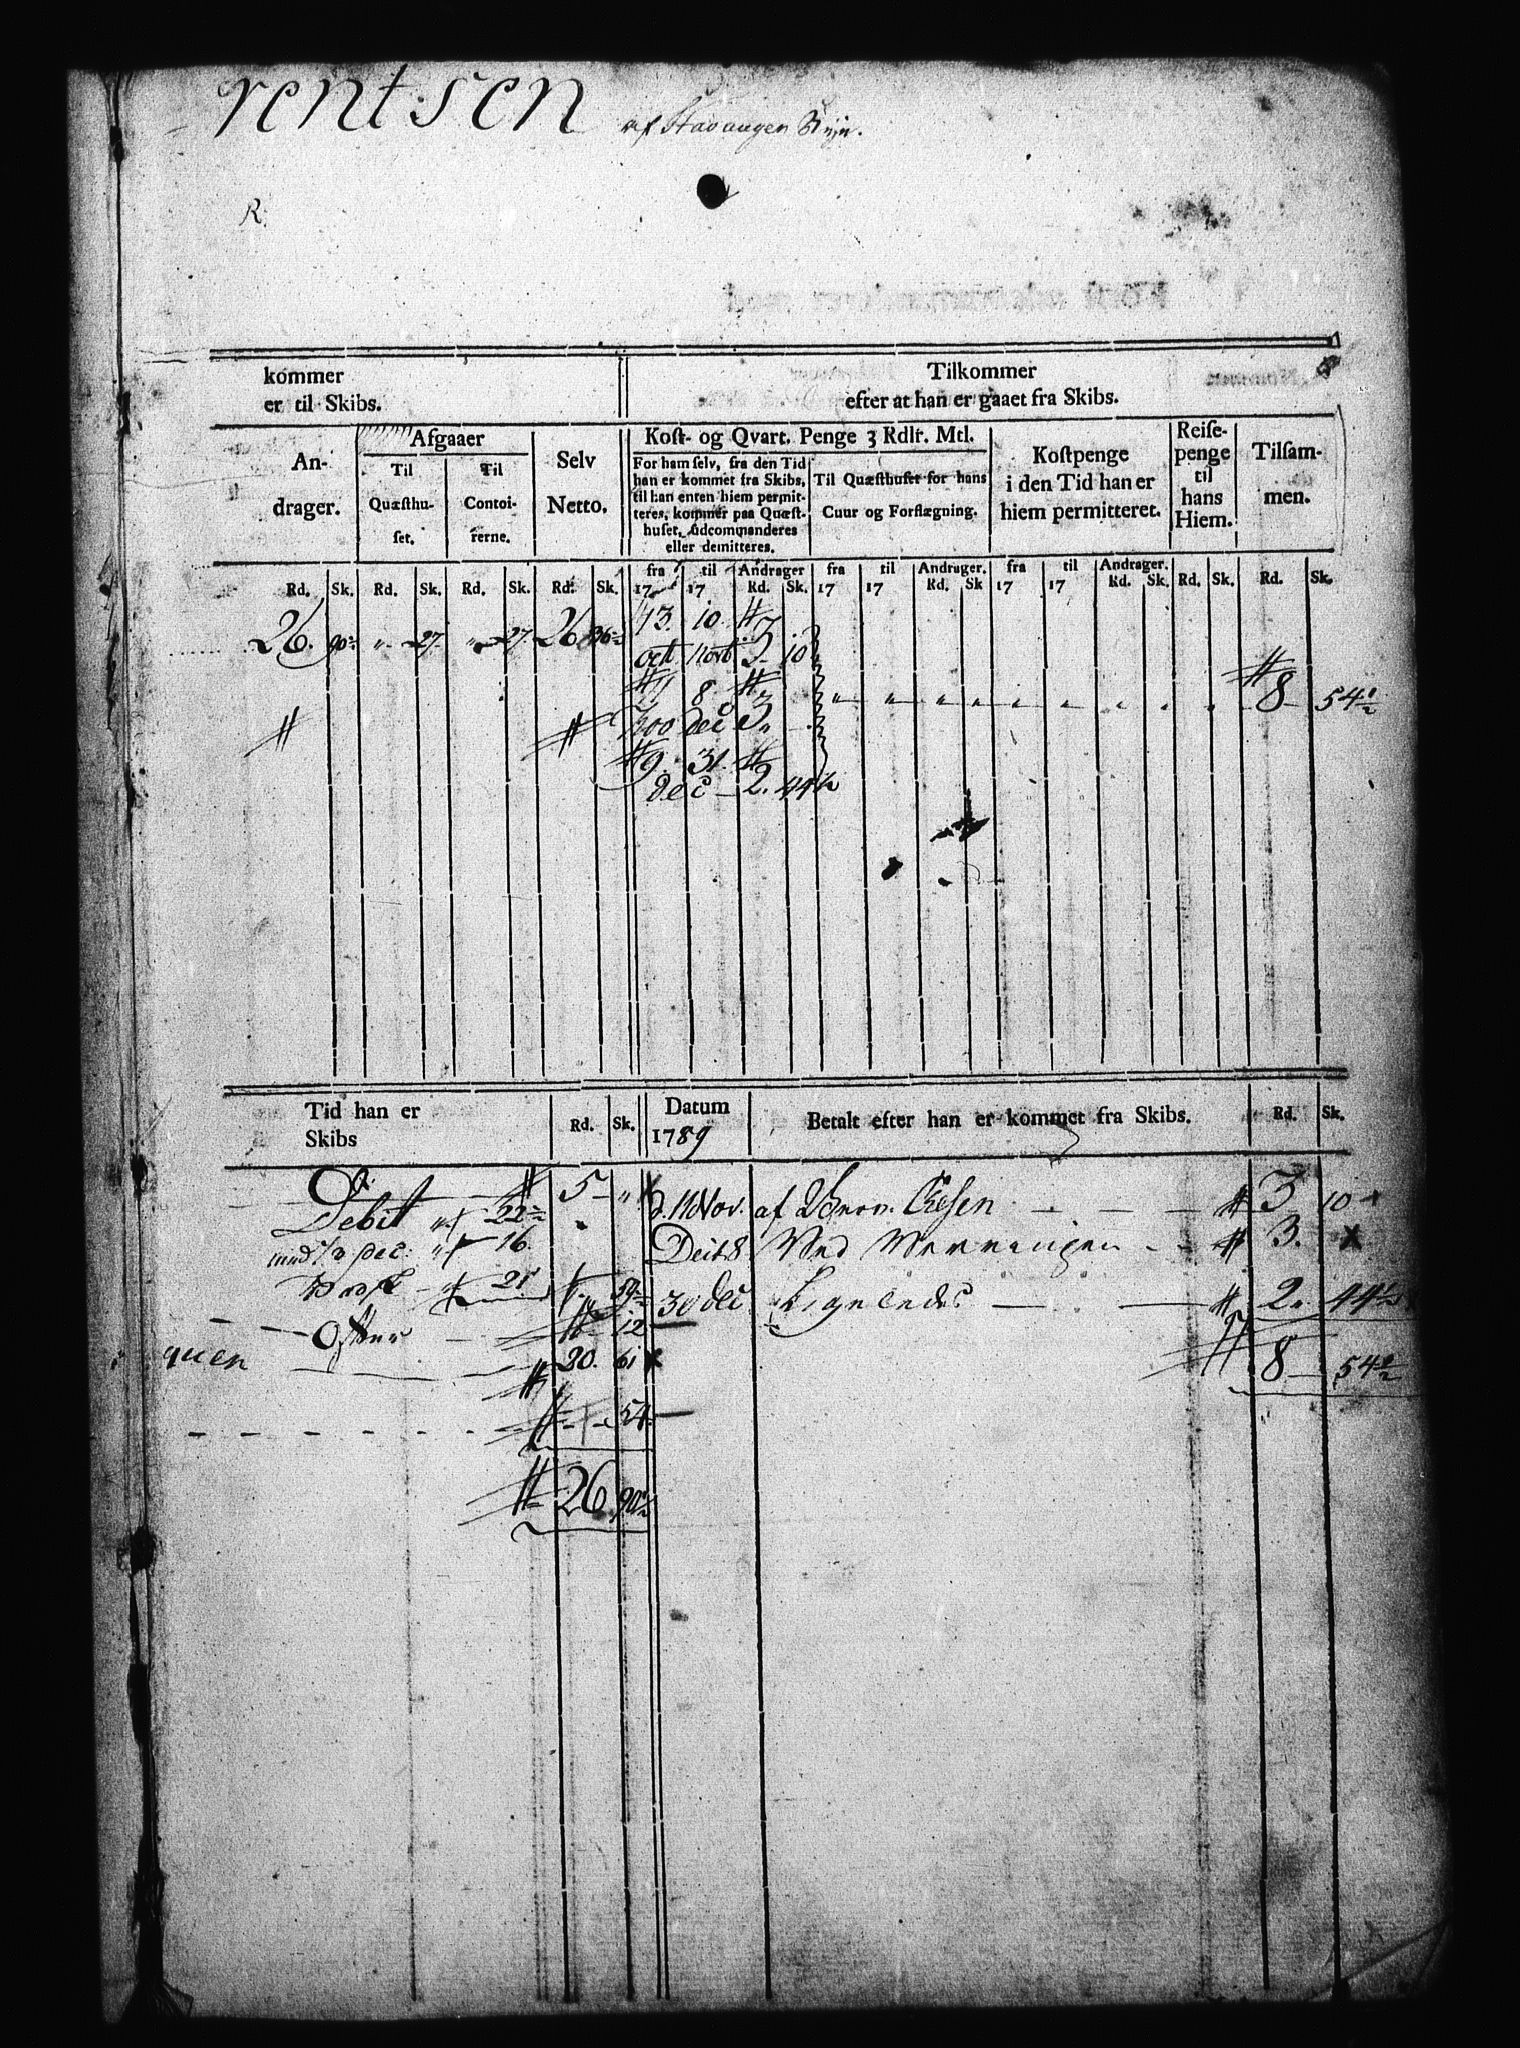 rentsen af Stavanger
R.
kommer
er til Skibs.
Tilkommer
efter at han er gaaet fra Skibs.
An-
drager.
Afgaaer
Til
Quæsthu-
set.
Til
Contoi-
rerne.
Selv
Netto.
Kost- og Qvart. Penge 3 Rdlr. Mtl.
For ham selv, fra den Tid
han er kommet fra Skibs,
til han enten hiem permit-
teres, kommer paa Quæst-
huset, udcommanderes
eller demitteres.
Til Quæsthuset for hans
Cuur og Forflægning.
Kostpenge
i den Tid han er
hiem permitteret.
Reise-
penge
til
hans
Hiem.
Tilsam-
men.
fra til Andrager fra til Andrager. fra til Andrager.
Rd. Sk. Rd. Sk. Rd. Sk. Rd. Sk. 17 17 Rd. Sk. 17 17 Rd. Sk 17 17 Rd. Sk. Rd. Sk. Rd. Sk.
26. 90½ " 27. " 27. 26 36½ 13. 10.
octb Novb 3 10
8
dec 3 " 8 54½
9 31
dec 2. 44½
Tid han er
Skibs
Rd. Sk. Datum
1789
Betalt efter han er kommet fra Skibs. Rd. Sk.
5 " d. 11 Nov. af 3 10
Debit 22½
16. Deit 8 Ved 3.
21 59½ 30 dec Ligeledes 2. 44½
12
quen 20. 61 8 54½
54
26 90½